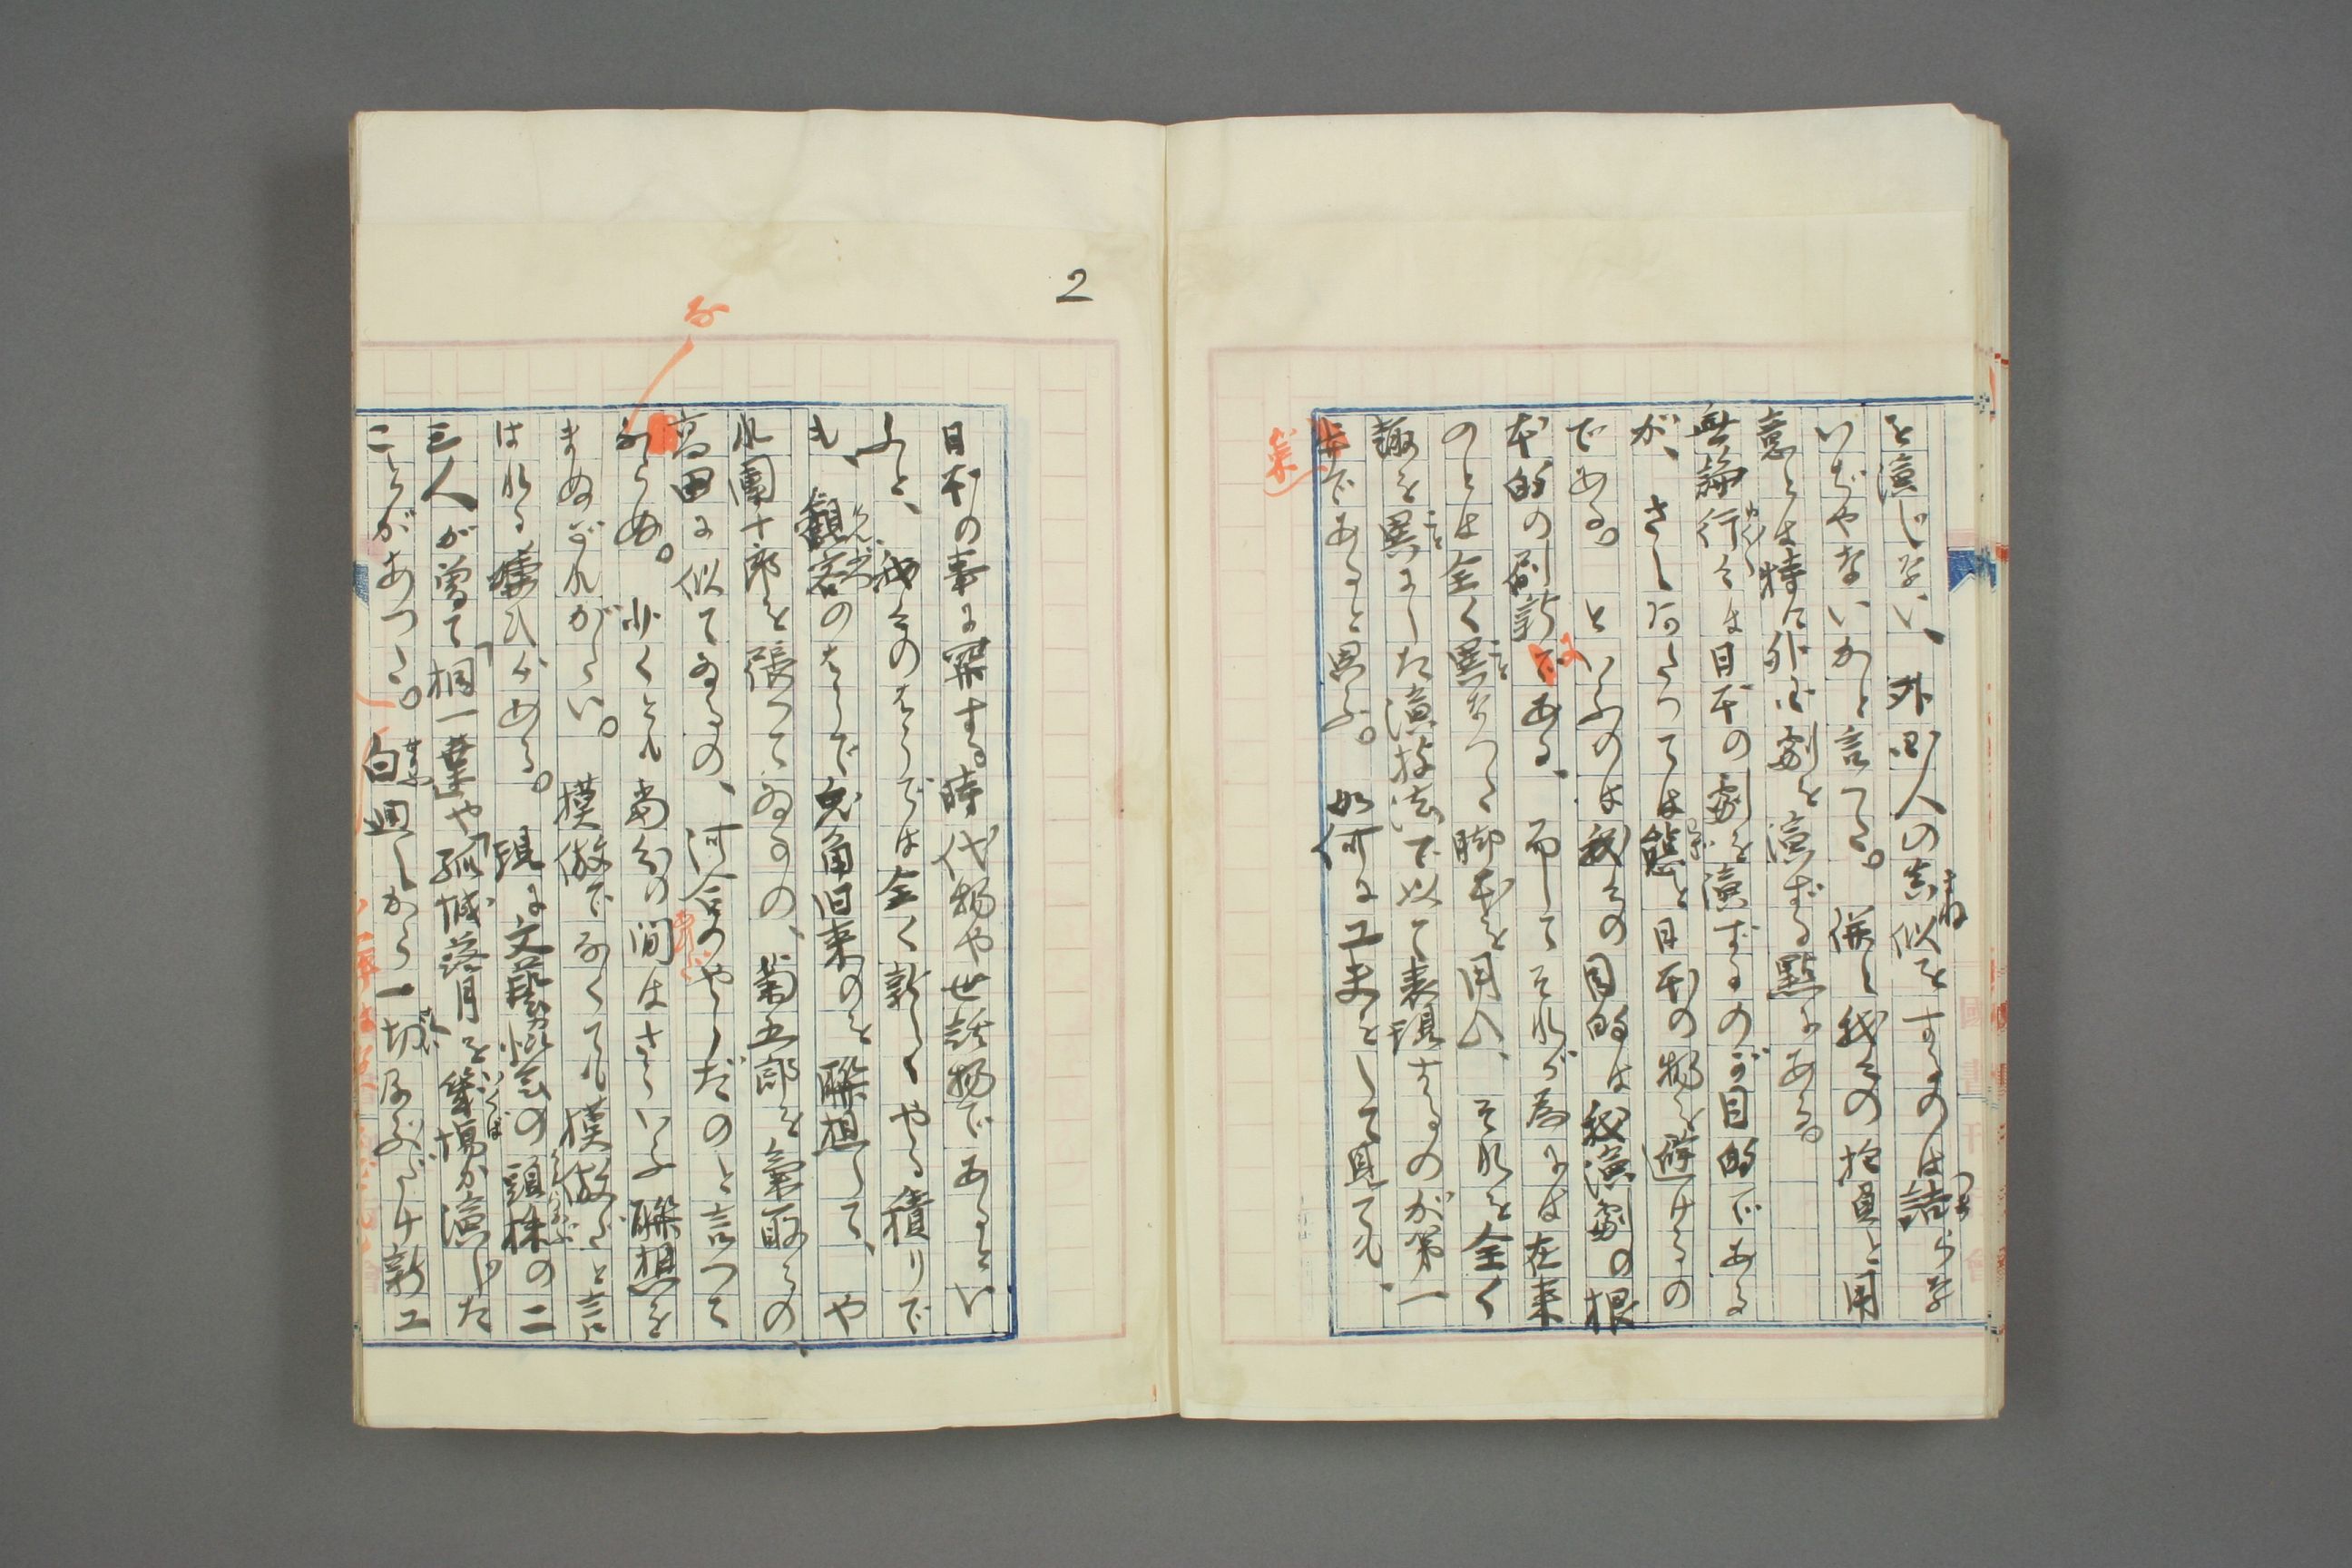 を演じない、外国人の真似をするのは詰らな
いぢやないかと言つた。併し我々の抱負と用
意とは特に外国劇を演ずる點にある。
無論行々は日本の劇を演ずるのが目的である
が、さし當つては態と日本の物を避けるの
である。といふのは我々の目的は我演劇の根
本的の刷新である、而してそれが為には在来
のとは全く異なつた脚本を用ひ、それを全く
趣を異にした演技法で以て表現するのが第一
歩であると思ふ。如何に工夫をして見ても、
2
日本の事に関する時代物や世話物であるとい
ふと、我々のはうでは全く新しくやる積りで
も、観客のはうで兎角旧来のを聯想して、や
れ團十郎を張つてゐるの、菊五郎を氣取るの
高田に似てゐるの、河合のやうだのと言つて
ならぬ。少くとも當分の間はさういふ聯想を
まぬがれがたい。模倣でなくても模倣だと言
はれる虞ひがある。現に文藝協会の頭株の二
三人が曽て「桐一葉」や「孤城落月」を幾場か演じた
ことがあつた。白廻しから一切及ぶだけ新工